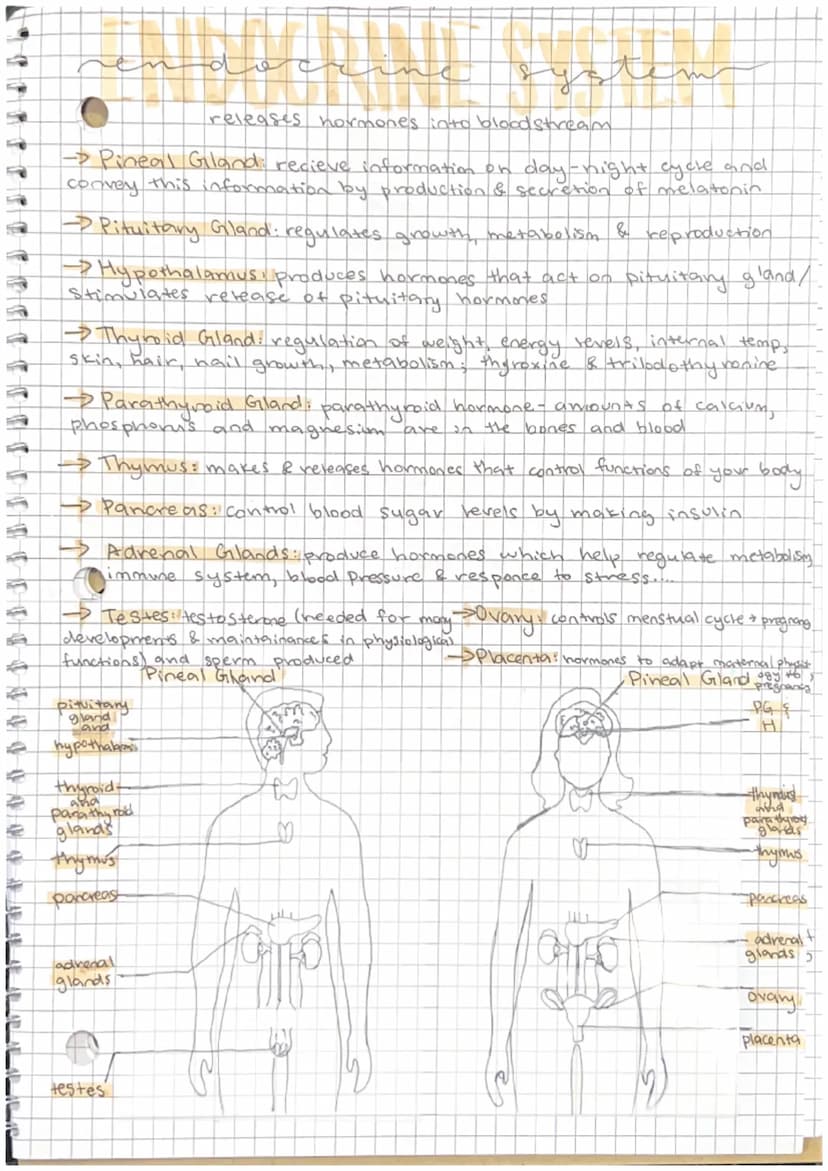 ENDOCRINE SYSTEM
endocrine system
releases hormones into bloodstream
→ Pineal Gland: recieve information on day-night cycle and
convey this information by production & secretion of melatonin
→ Pituitary Gland: regulates growth, metabolism & reproduction
→ Hypothalamus: produces hormones that act on pituitary gland/
stimulates release of pituitary hormones
→ Thyroid Gland: regulation of weight, energy levels, internal temp,
skin, hair, nail growth, metabolism; thyroxine & triiodothyronine
→ Parathyroid Gland: parathyroid hormone - amounts of calcium,
phosphorus and magnesium are in the bones and blood
→ Thymus: makes & releases hormones that control functions of your body
→ Pancreas: control blood sugar levels by making insulin
→ Adrenal Glands: produce hormones which help regulate metabolism
immune system, blood pressure & responce to stress....
→ Testes: testosterone (needed for many
developments & maintainances in physiological
functions) and sperm produced
→ Ovary: controls menstual cycle + pregnancy
→ Placenta: hormones to adapt maternal physiol
ogy to
pregnancy
Pineal Gland
pituitary
gland
and
hypothalamus
thyroid
and
parathyroid
glands
thymus
pancreas
adrenal
glands
testes
Pineal Gland
PG &
H
thyroid
and
parathyroid
glands
thymus
pancreas
adrenal
glands
ovary
placenta